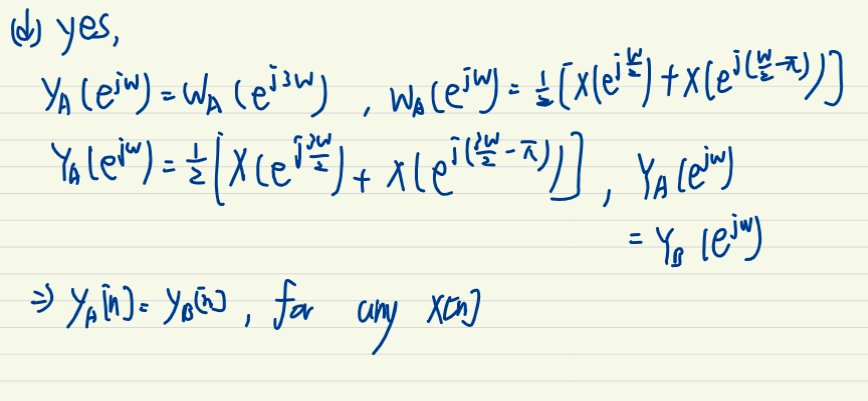 (d) yes,
Y_A(e^{jw}) = W_A(e^{j3w}) , W_A(e^{jw}) = 1/2 [X(e^{j w/2}) + X(e^{j(w/2 - π)})]
Y_A(e^{jw}) = 1/2 [X(e^{j 3w/2}) + X(e^{j(3w/2 - π)})] , Y_A(e^{jw})
= Y_B(e^{jw})
⇒ y_A[n] = y_B[n] , for any x[n]